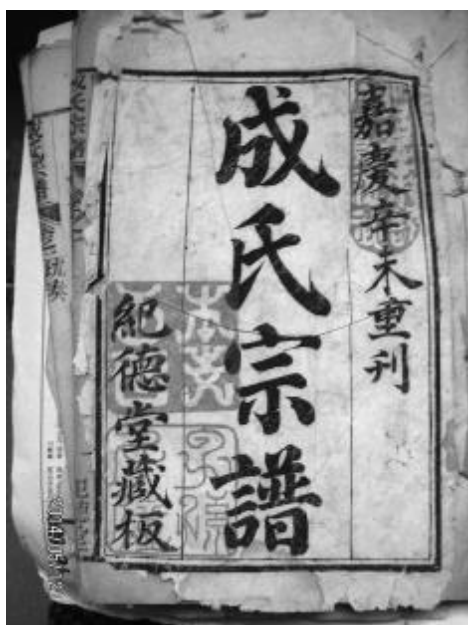 嘉慶辛未重刊
成氏宗譜
紀德堂藏板